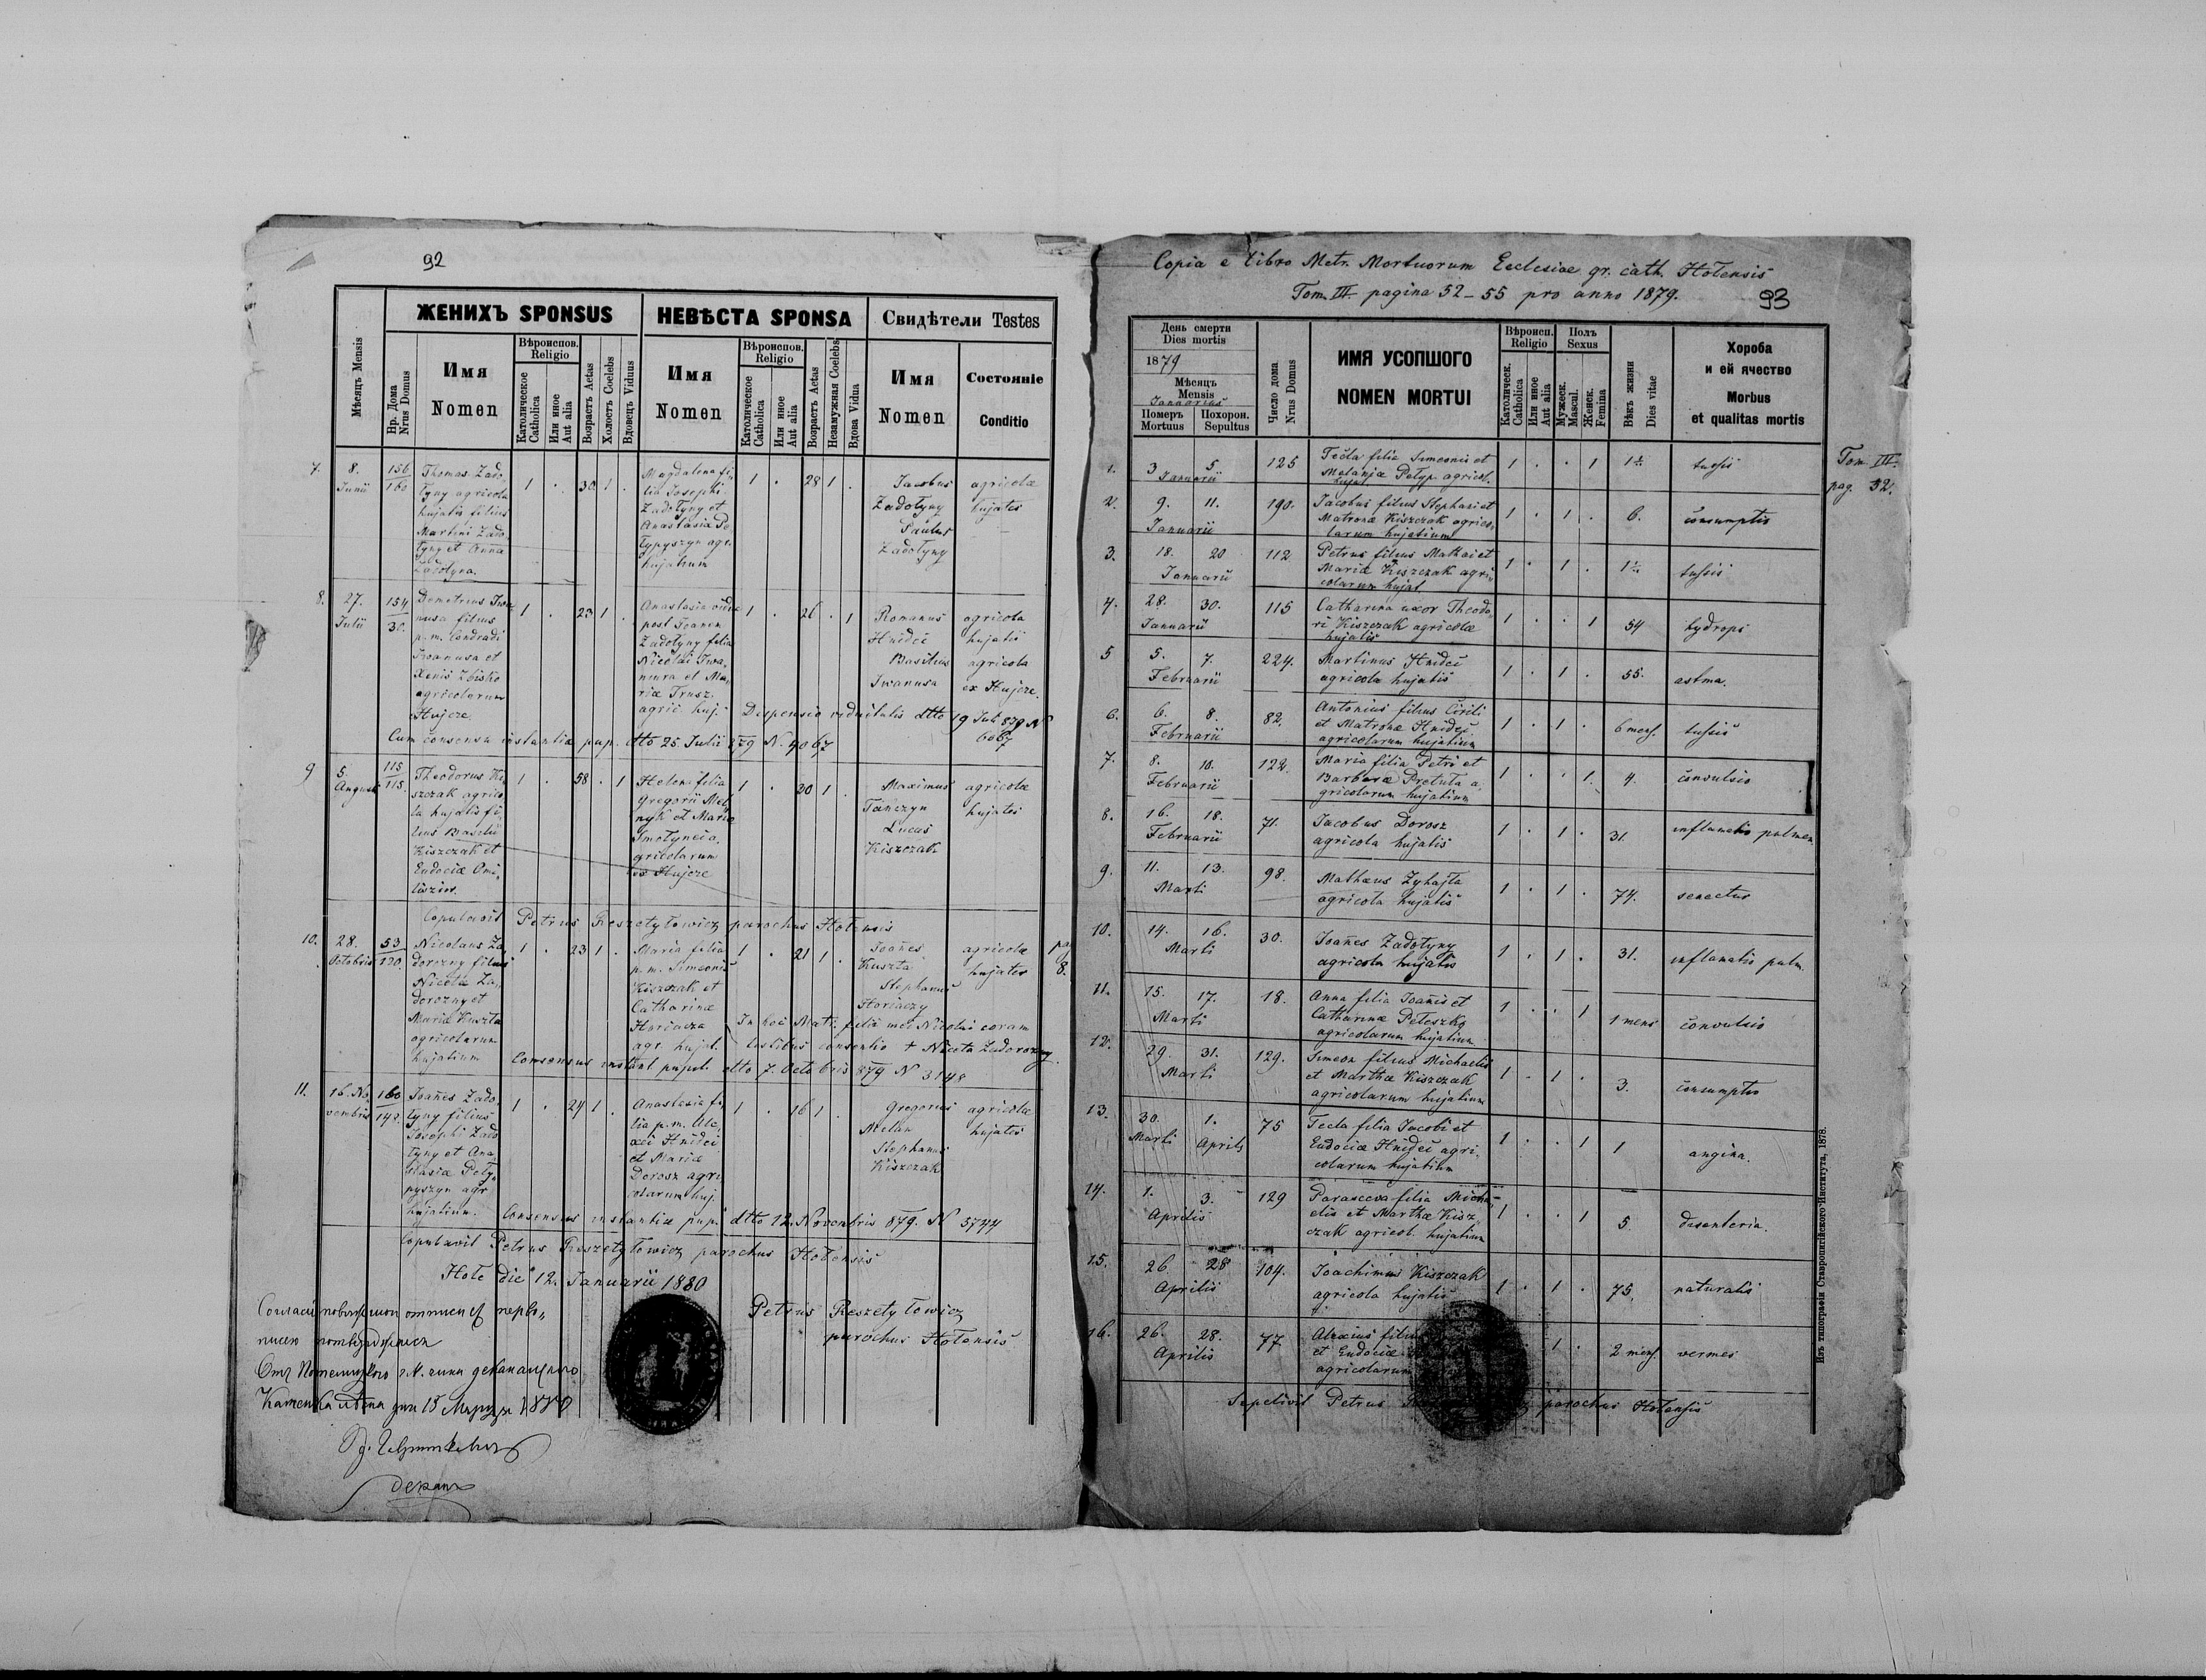 92
ЖЕНИХЪ SPONSUS
НЕВѢСТА SPONSA
Свидѣтели Testes
Мѣсяцъ Mensis
Нр. Дома
Nrus Domus
Имя
Nomen
Вѣроиспов.
Religio
Католическое
Catholica
Или иное
Aut alia
Возрастъ Aetas
Холостъ Coelebs
Вдовецъ Viduus
Имя
Nomen
Вѣроиспов.
Religio
Католическое
Catholica
Или иное
Aut alia
Возрастъ Aetas
Незамужная Coelebs
Вдова Vidua
Имя
Nomen
Состояніе
Conditio
7. 8. Junii 156 160
Thomas Zado
tyny agricola
hujatis filius
Martini Zado
tyny et Anna
Zadotyna.
1 . 30 1 .
Magdalena fi
lia Josephi
Zadotyny et
Anastasia Pe
typyszyn agr.
hujatium
1 . 28 1 .
Jacobus
Zadotyny
Paulus
Zadotyny
agricolæ
hujates
8. 27. Julii 154 30.
Demetrius Iwa
nusa filius
p. m. Condradi
Iwanusa et
Xenis Zbisko
agricolarum
Hujcze.
1 . 23 1 .
Anastasia vidua
post Joanem
Zadotyny filia
Nicolai Iwa,
niura et Ma,
riæ Trusz.
agric. huj.
1 . 26 . 1
Romanus
Hnidei
Basilius
Iwanusa
agricola
hujatis
agricola
ex Hujcze.
Dispensio viduitatis dtto 19 Juli 879 N
6067
Cum consensu instantiæ pup. dto 25 Julii 879 N. 4067
9 5. Augusti 115 115
Theodorus Ki
szczak agrico
la hujatis fi,
lius Basilii
Kiszczak et
Eudociæ Omi,
1 . 58 . 1
Helena filia
Gregorii Mel
nyk et Mariæ
Smotyncia,
gricolarum
ex Hujcze
1 . 20 1 .
Maximus
Tanczyn
Lucas
Kiszczak
agricolæ
hujates
Copulavit Petrus Reszetyłowicz parochus Hotensis
10. 28. Octobris 53 120.
Nicolaus Za,
dorozny filius
Nicolæ Za,
dorozny et
Mariæ Kuszta
agricolarum
hujatium
1 . 23 1 .
Maria filia
p. m. Simeonis
Kiszczak et
Catharinæ
Horiacza
agr. hujat.
1 . 21 1 .
Joañes
Kuszta
Stephanus
Horiaczy
agricolæ
hujates
pag
8.
In hoc Matr. filii mei Nicolai coram
testibus consentio + Nicola Zadorozny
Consensus instant pupil. dtto 7. Octobris 879 N 3148
11. 16. No, vembris 160 142.
Joañes Zado
tyny filius
Josephi Zado
tyny et Ana,
stasiæ Pety,
pyszyn agr
hujatium.
1 . 24 1 .
Anastasia fi,
lia p. m. Ale,
xei Hnidei
et Mariæ
Dorosz agri
colarum huj.
1 . 16 1 .
Gregorius
Melan
Stephanus
Kiszczak
agricolæ
hujates
Consensus instantiæ pup. dtto 12. Novembris 879. N 5744
Copulavit Petrus Reszetyłowicz parochus Hotensis
Hole die 12. Januarii 1880
Petrus Reszetyłowicz
parochus Hotensis
деканъ
Copia e libro Metr. Mortuorum Ecclesiae gr. cath. Hotensis
Tom. III. pagina 52–55 pro anno 1879.
93
День смерти
Dies mortis
1879
Мѣсяцъ
Mensis
Januarius
Померъ
Mortuus
Похорон.
Sepultus
Число дома
Nrus Domus
ИМЯ УСОПШОГО
NOMEN MORTUI
Вѣроисп.
Religio
Католическ.
Catholica
Или иное
Aut alia
Полъ
Sexus
Мужеск.
Mascul.
Женск.
Femina
Вѣкъ жизни
Dies vitae
Хороба
и ей ячество
Morbus
et qualitas mortis
Tom. III.
pag. 52.
1. 3 5 Januarii 125
Tecla filia Simeonis et
Melaniæ Petyp agricol.
hujat
1 . . 1 tussis
2. 9. 11. Januarii 190.
Jacobus filius Stephani et
Matronæ Kiszczak agrico,
larum hujatium
1 . 1 . 6. consumptio
3. 18. 20 Januarii 112
Petrus filius Mathæi et
Mariæ Kiszczak agri,
colarum hujat.
1 . 1 . tussis
4. 28. 30. Januarii 115
Catharina uxor Theodo,
ri Kiszczak agricolæ
hujatis
1 . . 1 54 hydrops
5 5. 7. Februarii 224.
Martinus Hnidei
agricola hujatis
1 . 1 . 55. astma.
6. 6. 8. Februarii 82.
Antonius filius Cirili
et Matronæ Hnidei
agricolarum hujatium
1 . 1 . 6 mens. tussis
7. 8. 10. Februarii 122.
Maria filia Petri et
Barbaræ Protuta a,
gricolarum hujatium
1 . . 1. 4. convulsio
8. 16. 18. Februarii 71.
Jacobus Dorosz
agricola hujatis
1 . 1 . 31. inflamatio pulmon
9. 11. 13. Marti 98.
Mathæus Zyhajta
agricola hujatis
1 . 1 . 74. senectus
10. 14. 16. Marti 30.
Joañes Zadotyny
agricola hujatis
1 . 1 . 31. inflamatio pulm.
11. 15. 17. Marti 18.
Anna filia Joañis et
Catharinæ Peteszko
agricolarum hujatium
1 . . 1 1 mens convulsio
12. 29. 31. Marti 129.
Simeon filius Michaelis
et Marthæ Kiszczak
agricolarum hujatium
1 . 1 . 3. consumptio
13. 30. Marti 1. Aprilis 75
Tecla filia Jacobi et
Eudociæ Hnidei agri,
colarum hujatium
1 . . 1 1 angina.
14. 1. 3. Aprilis 129
Parasceva filia Micha,
elis et Marthæ Kisz,
czak agricol. hujatium
1 . . 1 5. disenteria.
15. 26 28 Aprilis 104.
Joachimus Kiszczak
agricola hujatis
1 . 1 . 75. naturalis
16. 26. 28. Aprilis 77
Alexius filius
et Eudociæ
agricolarum
1 . 2 mens. vermes
Sepelivit Petrus parochus Hotensis
Изъ типографіи Ставропигійского Института, 1878.